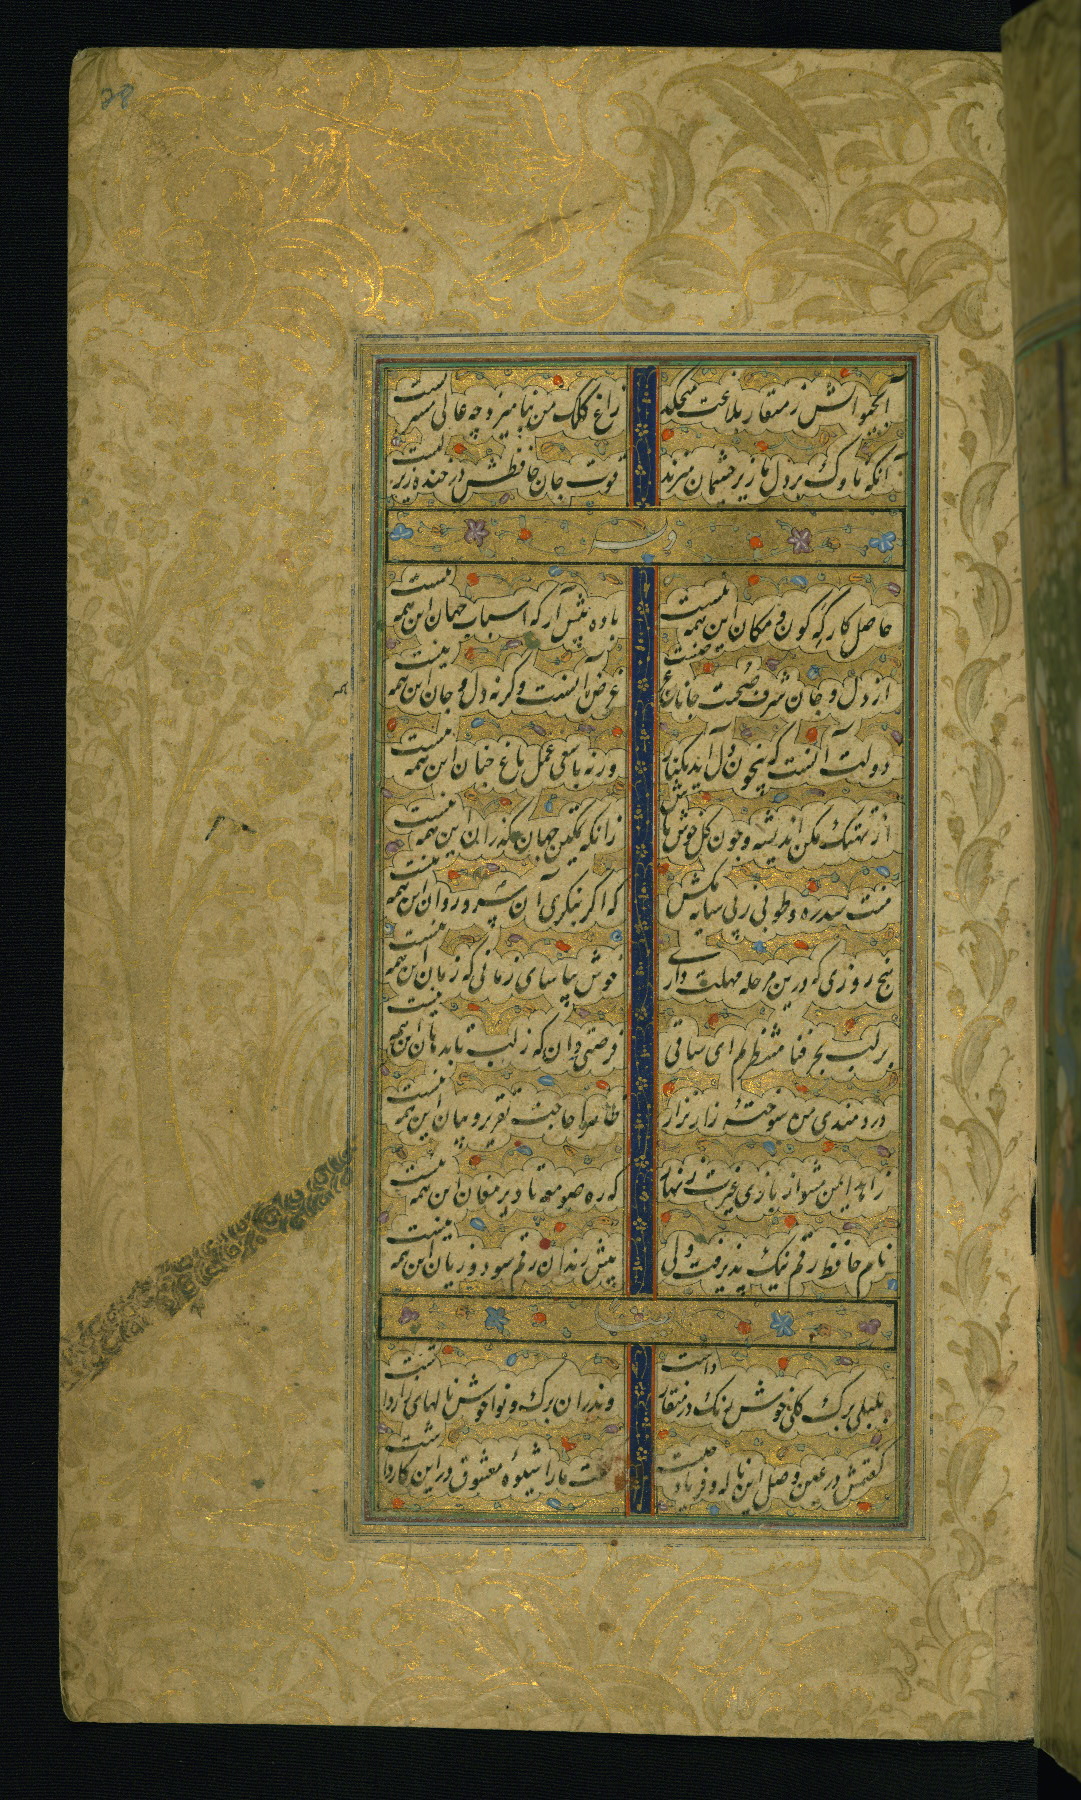 28
آب حیوانش ز منقار بلاغت میچکد
زاغ کلک من بنامیزد چه عالی مشربست
آنکه ناوک بر دل ما زیر چشمان میزند
قوت جان حافظش در خنده زیر لبست
وله
حاصل کارگه کون و مکان این همه نیست
باده پیش آر که اسباب جهان این همه نیست
از دل و جان شرف صحبت جانان غرضست
غرض آنست وگرنه دل و جان این همه نیست
دولت آنست که بیخون دل آید بکنار
ورنه با سعی عمل باغ جنان این همه نیست
از تهتک مکن اندیشه و چون گل خوش باش
زانکه تمکین جهان گذران این همه نیست
منت سدره و طوبی ز پی سایه مکش
که اگر بنگری آن سرو روان این همه نیست
پنج روزی که درین مرحله مهلت داری
خوش بیاسای زمانی که زمان این همه نیست
بر لب بحر فنا منتظرم ای ساقی
فرصتی دان که ز لب تا بدهان این همه نیست
دردمندی من سوختهٔ زار نزار
ظاهرا حاجت تقریر و بیان این همه نیست
زاهد ایمن مشو از بازی غیرت زنهار
که ره صومعه تا دیر مغان این همه نیست
نام حافظ رقم نیک پذیرفت ولی
پیش رندان رقم سود و زیان این همه نیست
بلبلی برک گلی خوش رنک در منقار داشت
وندران برک و نوا خوش نالهای زار داشت
گفتمش در عین وصل این ناله و فریاد چیست
گفت مارا شیوهٔ معشوق در این کار داشت